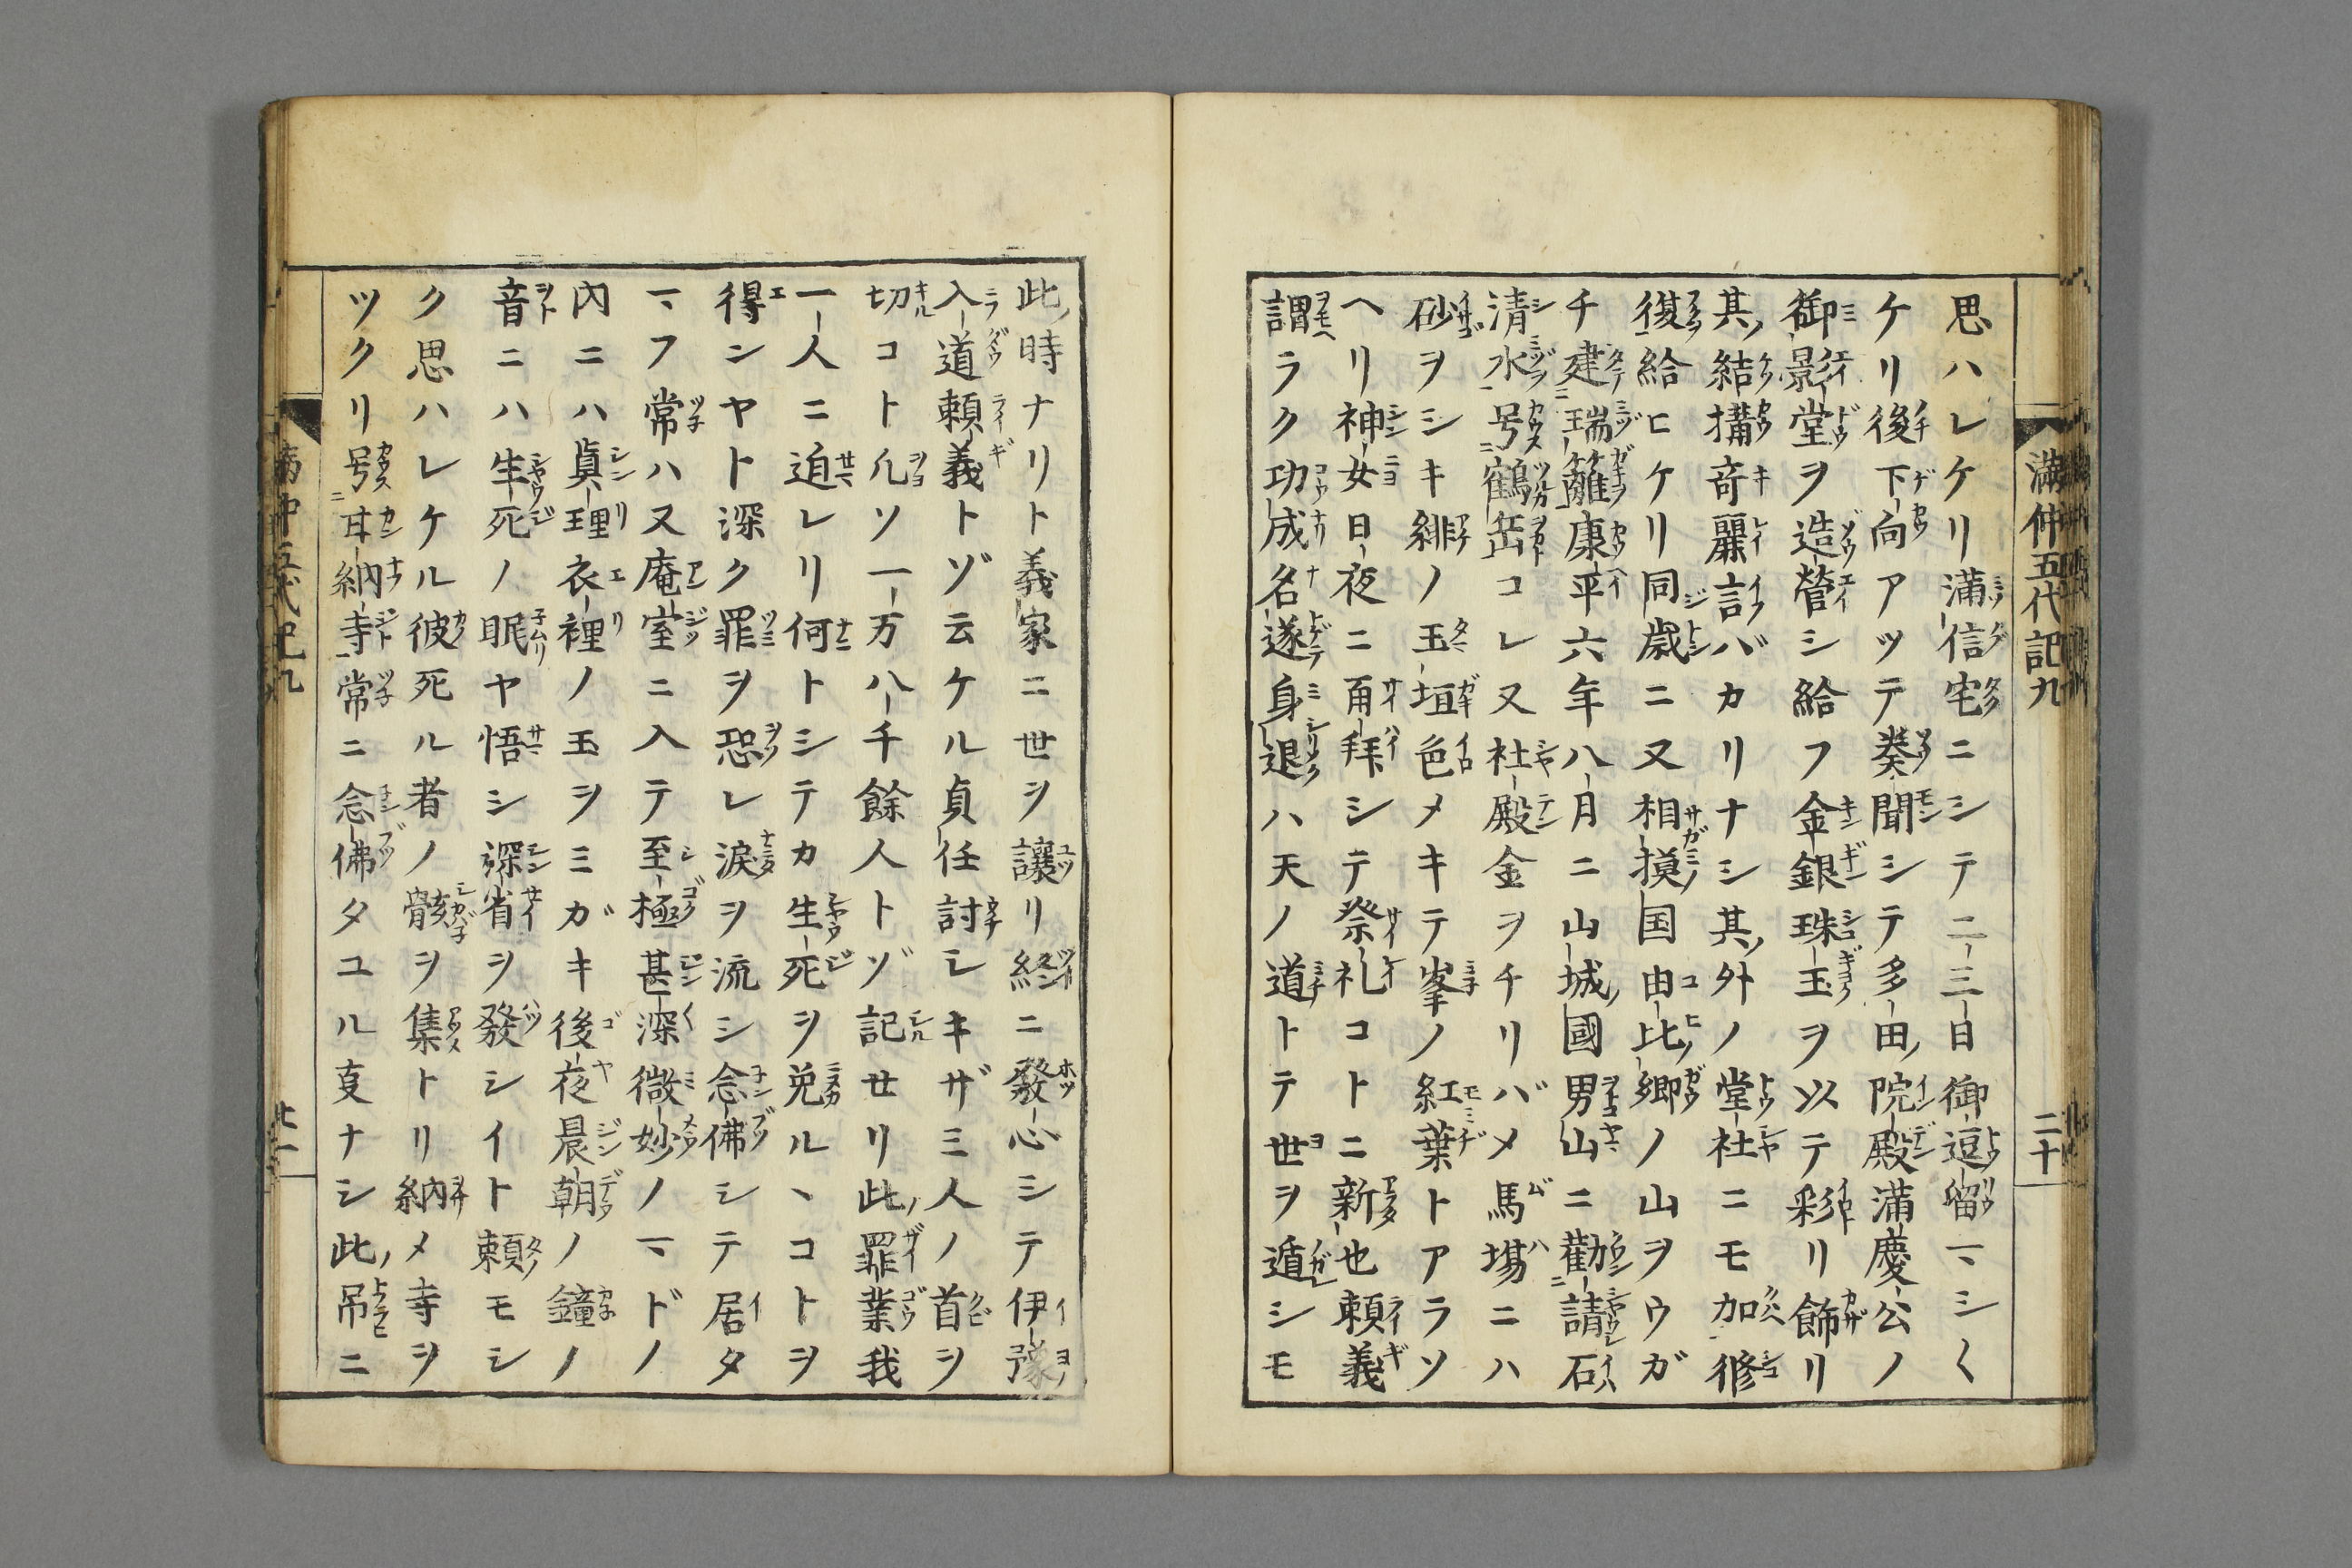 思ハレケリ満信宅ニシテ二三日御逗留マシ〱
ケリ後下向アツテ奏聞シテ多田院殿満慶公ノ
御影堂ヲ造營シ給フ金銀珠玉ヲ以テ彩リ餝リ
其結搆奇麗言バカリナシ其外ノ堂社ニモ加修
復給ヒケリ同歳ニ又相摸国由比郷ノ山ヲウガ
チ建瑞籬康平六年八月ニ山城國男山ニ勸請石
清水号鶴岳コレ又社殿金ヲチリバメ馬場ニハ
砂ヲシキ緋ノ玉垣色メキテ峯ノ紅葉トアラソ
ヘリ神女日夜ニ再拜シテ祭礼コトニ新也頼義
謂ラク功成名遂身退ハ天ノ道トテ世ヲ遁シモ
満仲五代記九
二十
此時ナリト義家ニ世ヲ讓リ終ニ發心シテ伊豫
入道頼義トゾ云ケル貞任討レキザミ人ノ首ヲ
切コト凢ソ一万八千餘人トゾ記せリ此罪業我
一人ニ迫レリ何トシテカ生死ヲ兔ルヽコトヲ
得ンヤト深ク罪ヲ恐レ淚ヲ流シ念佛シテ居タ
マフ常ハ又庵室ニ入テ至極甚深微妙ノマドノ
內ニハ眞理衣裡ノ玉ヲミガキ後夜晨朝ノ鐘ノ
音ニハ生死ノ眠ヤ悟シ深省ヲ發シイト頼モシ
ク思ハレケル彼死ル者ノ骸ヲ集トリ納メ寺ヲ
ツクリ号耳納寺常ニ念佛タユル亊ナシ此吊ニ
満仲五代記九
廿一